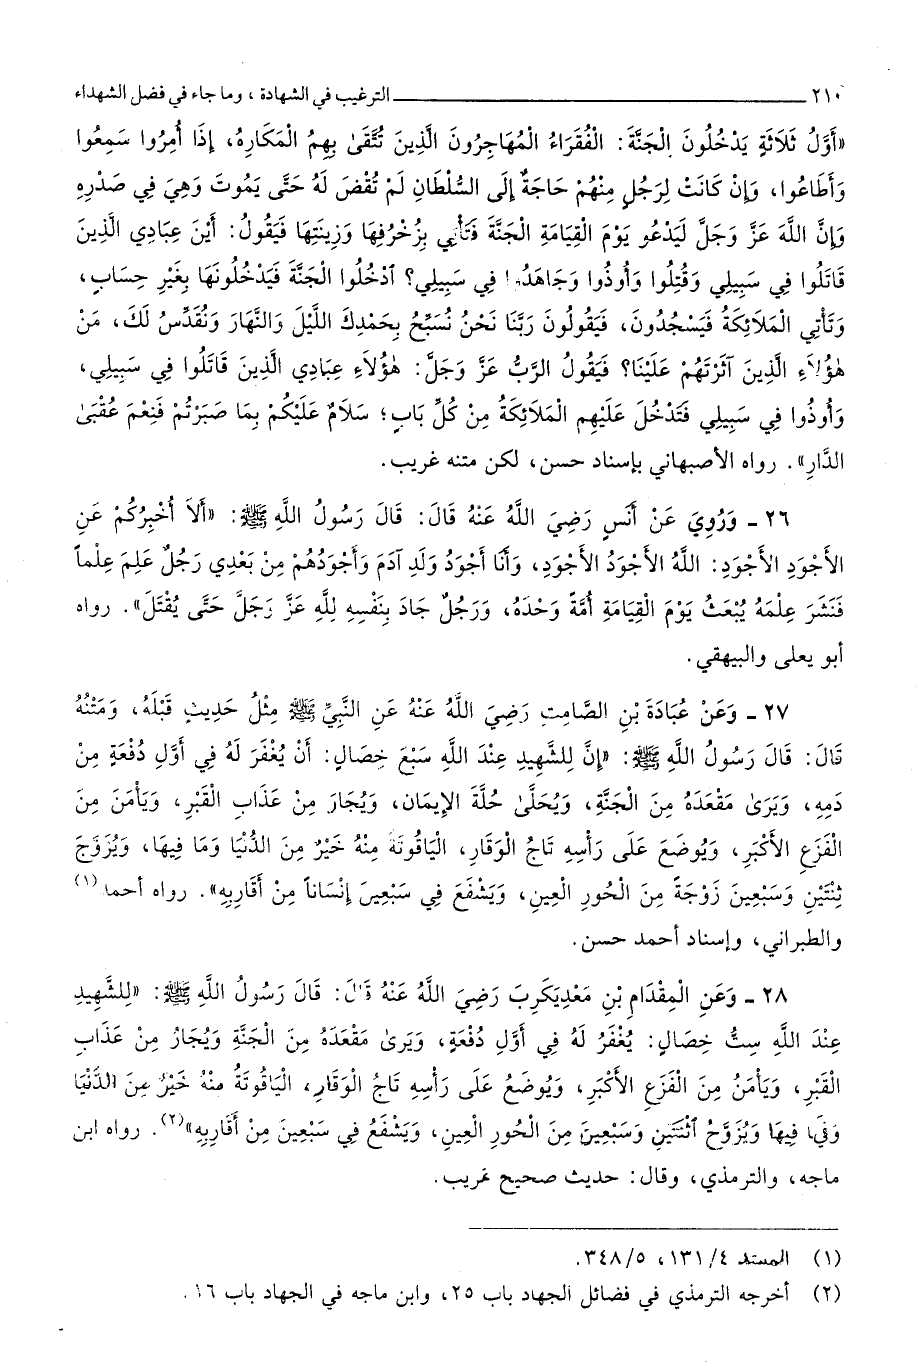 ٢١٠ الترغيب في الشهادة ، وما جاء في فضل الشهداء
«أَوَّلُ ثَلَاثَةٍ يَدْخُلُونَ الْجَنَّةَ: الْفُقَرَاءُ الْمُهَاجِرُونَ الَّذِينَ تُتَّقَىٰ بِهِمُ الْمَكَارِهُ، إِذَا أُمِرُوا سَمِعُوا
وَأَطَاعُوا، وَإِنْ كَانَتْ لِرَجُلٍ مِنْهُمْ حَاجَةٌ إِلَى السُّلْطَانِ لَمْ تُقْضَ لَهُ حَتَّى يَمُوتَ وَهِيَ فِي صَدْرِهِ
وَإِنَّ اللَّهَ عَزَّ وَجَلَّ لَيَدْعُو يَوْمَ الْقِيَامَةِ الْجَنَّةَ فَتَأْتِي بِزُخْرُفِهَا وَزِينَتِهَا فَيَقُولُ: أَيْنَ عِبَادِي الَّذِينَ
قَاتَلُوا فِي سَبِيلِي وَقُتِلُوا وَأُوذُوا وَجَاهَدُوا فِي سَبِيلِي؟ ادْخُلُوا الْجَنَّةَ فَيَدْخُلُونَهَا بِغَيْرِ حِسَابٍ،
وَتَأْتِي الْمَلَائِكَةُ فَيَسْجُدُونَ، فَيَقُولُونَ رَبَّنَا نَحْنُ نُسَبِّحُ بِحَمْدِكَ اللَّيْلَ وَالنَّهَارَ وَنُقَدِّسُ لَكَ، مَنْ
هٰؤُلَاءِ الَّذِينَ آثَرْتَهُمْ عَلَيْنَا؟ فَيَقُولُ الرَّبُّ عَزَّ وَجَلَّ: هٰؤُلَاءِ عِبَادِي الَّذِينَ قَاتَلُوا فِي سَبِيلِي،
وَأُوذُوا فِي سَبِيلِي فَتَدْخُلَ عَلَيْهِمِ الْمَلَائِكَةُ مِنْ كُلِّ بَابٍ؛ سَلَامٌ عَلَيْكُمْ بِمَا صَبَرْتُمْ فَنِعْمَ عُقْبَىٰ
الدَّارِ». رواه الأصبهاني بإسناد حسن، لكن متنه غريب.
٢٦ ـ وَرُوِيَ عَنْ أَنَسٍ رَضِيَ اللَّهُ عَنْهُ قَالَ: قَالَ رَسُولُ اللَّهِ ﷺ: «أَلَا أُخْبِرُكُمْ عَنِ
الأَجْوَدِ الأَجْوَدِ: اللَّهُ الأَجْوَدُ الأَجْوَدِ، وَأَنَا أَجْوَدُ وَلَدِ آدَمَ وَأَجْوَدُهُمْ مِنْ بَعْدِي رَجُلٌ عَلِمَ عِلْماً
فَنَشَرَ عِلْمَهُ يُبْعَثُ يَوْمَ الْقِيَامَةِ أُمَّةً وَحْدَهُ، وَرَجُلٌ جَادَ بِنَفْسِهِ لِلَّهِ عَزَّ وَجَلَّ حَتَّى يُقْتَلَ». رواه
أبو يعلى والبيهقي.
٢٧ ـ وَعَنْ عُبَادَةَ بْنِ الصَّامِتِ رَضِيَ اللَّهُ عَنْهُ عَنِ النَّبِيِّ ﷺ مِثْلُ حَدِيثٍ قَبْلَهُ، وَمَتْنُهُ
قَالَ: قَالَ رَسُولُ اللَّهِ ﷺ: «إِنَّ لِلشَّهِيدِ عِنْدَ اللَّهِ سَبْعَ خِصَالٍ: أَنْ يُغْفَرَ لَهُ فِي أَوَّلِ دُفْعَةٍ مِنْ
دَمِهِ، وَيَرَىٰ مَقْعَدَهُ مِنَ الْجَنَّةِ، وَيُحَلَّىٰ حُلَّةَ الإِيمَانِ، وَيُجَارَ مِنْ عَذَابِ الْقَبْرِ، وَيَأْمَنَ مِنَ
الْفَزَعِ الأَكْبَرِ، وَيُوضَعَ عَلَى رَأْسِهِ تَاجُ الْوَقَارِ، الْيَاقُوتَةُ مِنْهُ خَيْرٌ مِنَ الدُّنْيَا وَمَا فِيهَا، وَيُزَوَّجَ
ثِنْتَيْنِ وَسَبْعِينَ زَوْجَةً مِنَ الْحُورِ الْعِينِ، وَيَشْفَعَ فِي سَبْعِينَ إِنْسَاناً مِنْ أَقَارِبِهِ». رواه أحمد(١)
والطبراني، وإسناد أحمد حسن.
٢٨ ـ وَعَنِ الْمِقْدَامِ بْنِ مَعْدِيكَرِبَ رَضِيَ اللَّهُ عَنْهُ قَالَ: قَالَ رَسُولُ اللَّهِ ﷺ: «لِلشَّهِيدِ
عِنْدَ اللَّهِ سِتُّ خِصَالٍ: يُغْفَرُ لَهُ فِي أَوَّلِ دُفْعَةٍ، وَيَرَىٰ مَقْعَدَهُ مِنَ الْجَنَّةِ وَيُجَارُ مِنْ عَذَابِ
الْقَبْرِ، وَيَأْمَنُ مِنَ الْفَزَعِ الأَكْبَرِ، وَيُوضَعُ عَلَى رَأْسِهِ تَاجُ الْوَقَارِ، الْيَاقُوتَةُ مِنْهُ خَيْرٌ مِنَ الدُّنْيَا
وَمَا فِيهَا وَيُزَوَّجُ اثْنَتَيْنِ وَسَبْعِينَ مِنَ الْحُورِ الْعِينِ، وَيَشْفَعُ فِي سَبْعِينَ مِنْ أَقَارِبِهِ»(٢). رواه ابن
ماجه، والترمذي، وقال: حديث صحيح غريب.
(١) المسند ٤/ ١٣١، ٥/ ٣٤٨.
(٢) أخرجه الترمذي في فضائل الجهاد باب ٢٥، وابن ماجه في الجهاد باب ١٦.